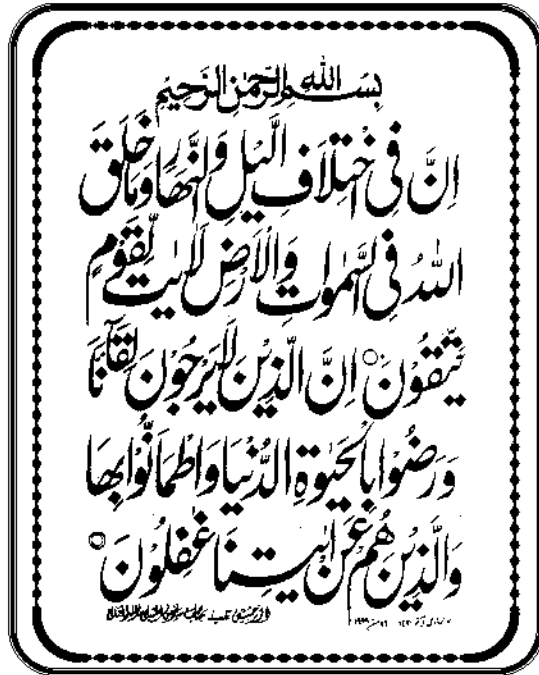 بِسْمِ اللهِ الرَّحْمٰنِ الرَّحِيْمِ
اِنَّ فِى اخْتِلَافِ الَّيْلِ وَالنَّهَارِ وَمَا خَلَقَ
اللهُ فِى السَّمٰوٰتِ وَالْاَرْضِ لَاٰيٰتٍ لِّقَوْمٍ
يَّتَّقُوْنَ ○ اِنَّ الَّذِيْنَ لَا يَرْجُوْنَ لِقَآءَنَا
وَرَضُوْا بِالْحَيٰوةِ الدُّنْيَا وَاطْمَاَنُّوْا بِهَا
وَالَّذِيْنَ هُمْ عَنْ اٰيٰتِنَا غٰفِلُوْنَ ○